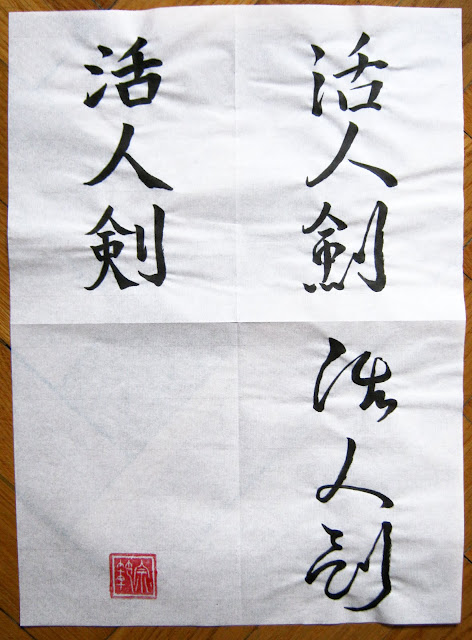 活人剣
活人剣
活人剣